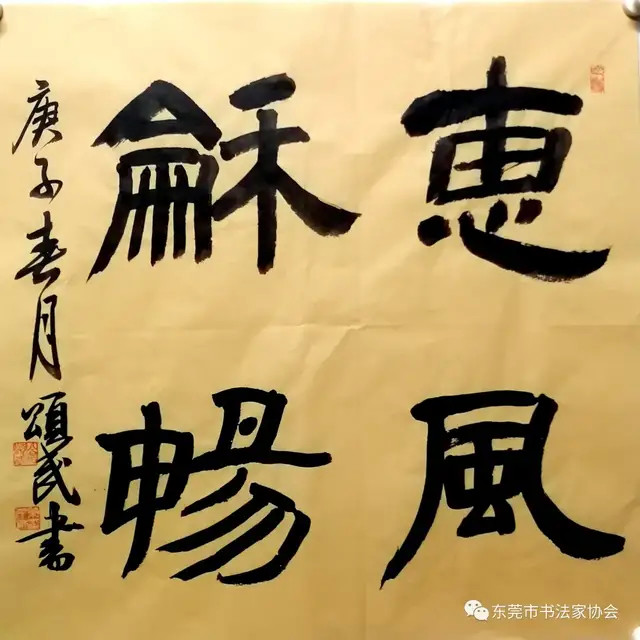 惠風
龢暢
庚子春月頌民書
东莞市书法家协会